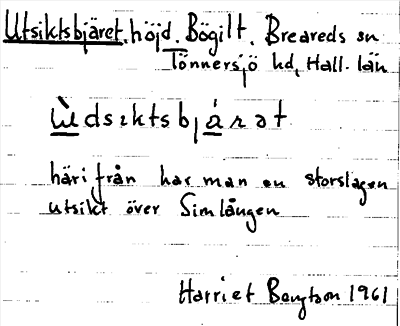 Utsiktsbjäret, höjd. Bögilt. Breareds sn
Tönnersjö hd, Hall. län
Ùdsıktsbjárat
härifrån har man en storslagen
utsikt över Simlången
Harriet Bengtson 1961